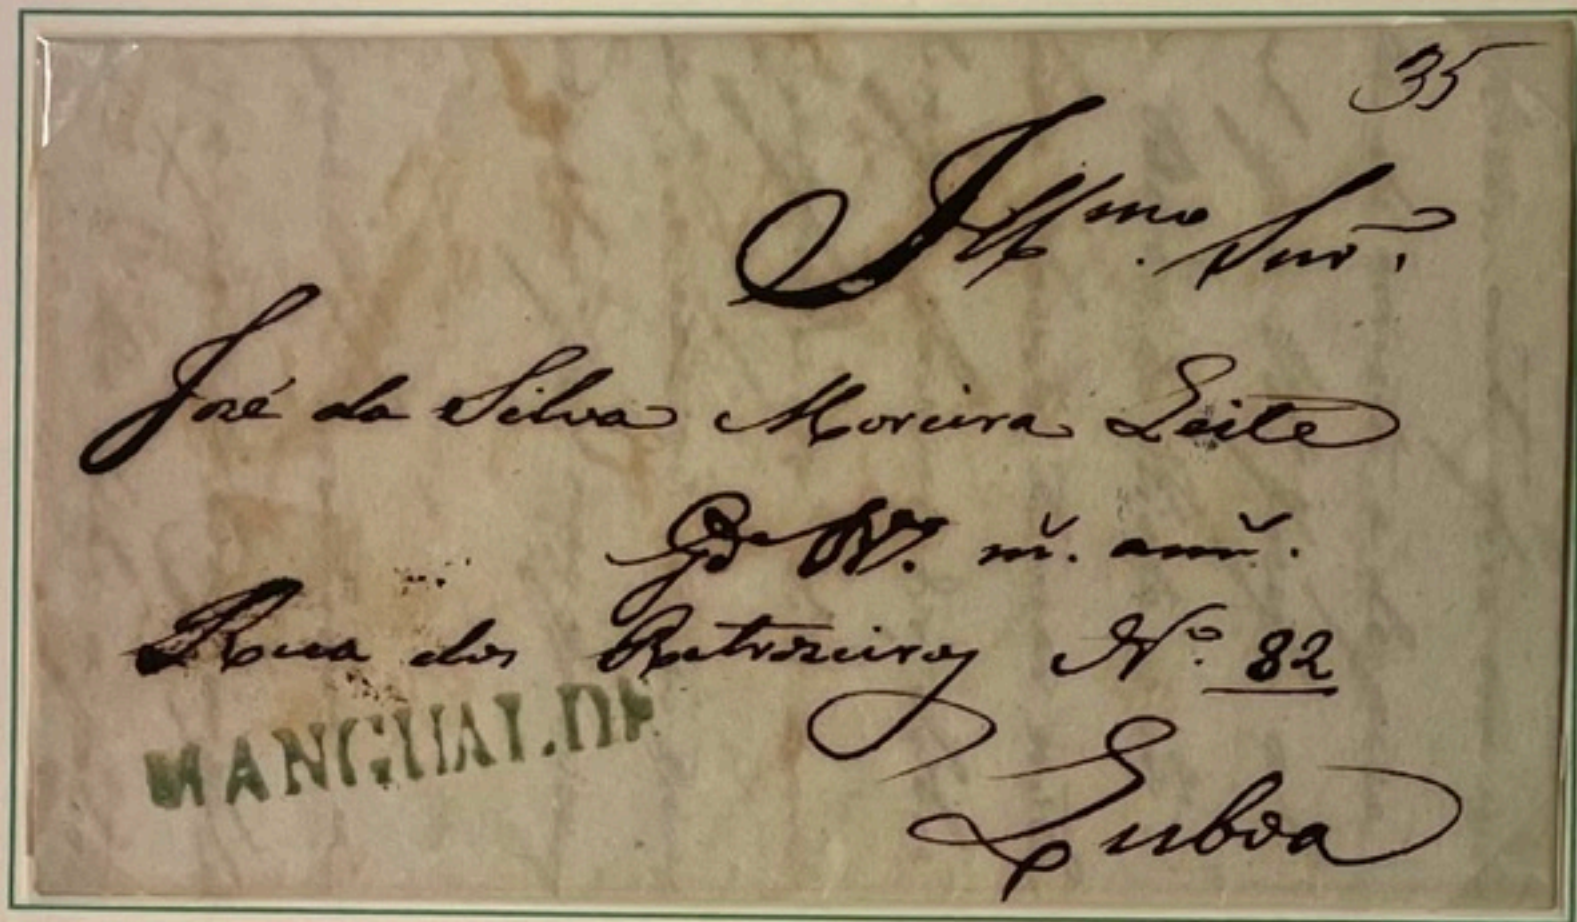 35
Illmo. Snr.
José da Silva Moreira Leite
Gde V. m. ann.
Rua dos Retrozeiros No. 82
MANGUALDE
Lisboa